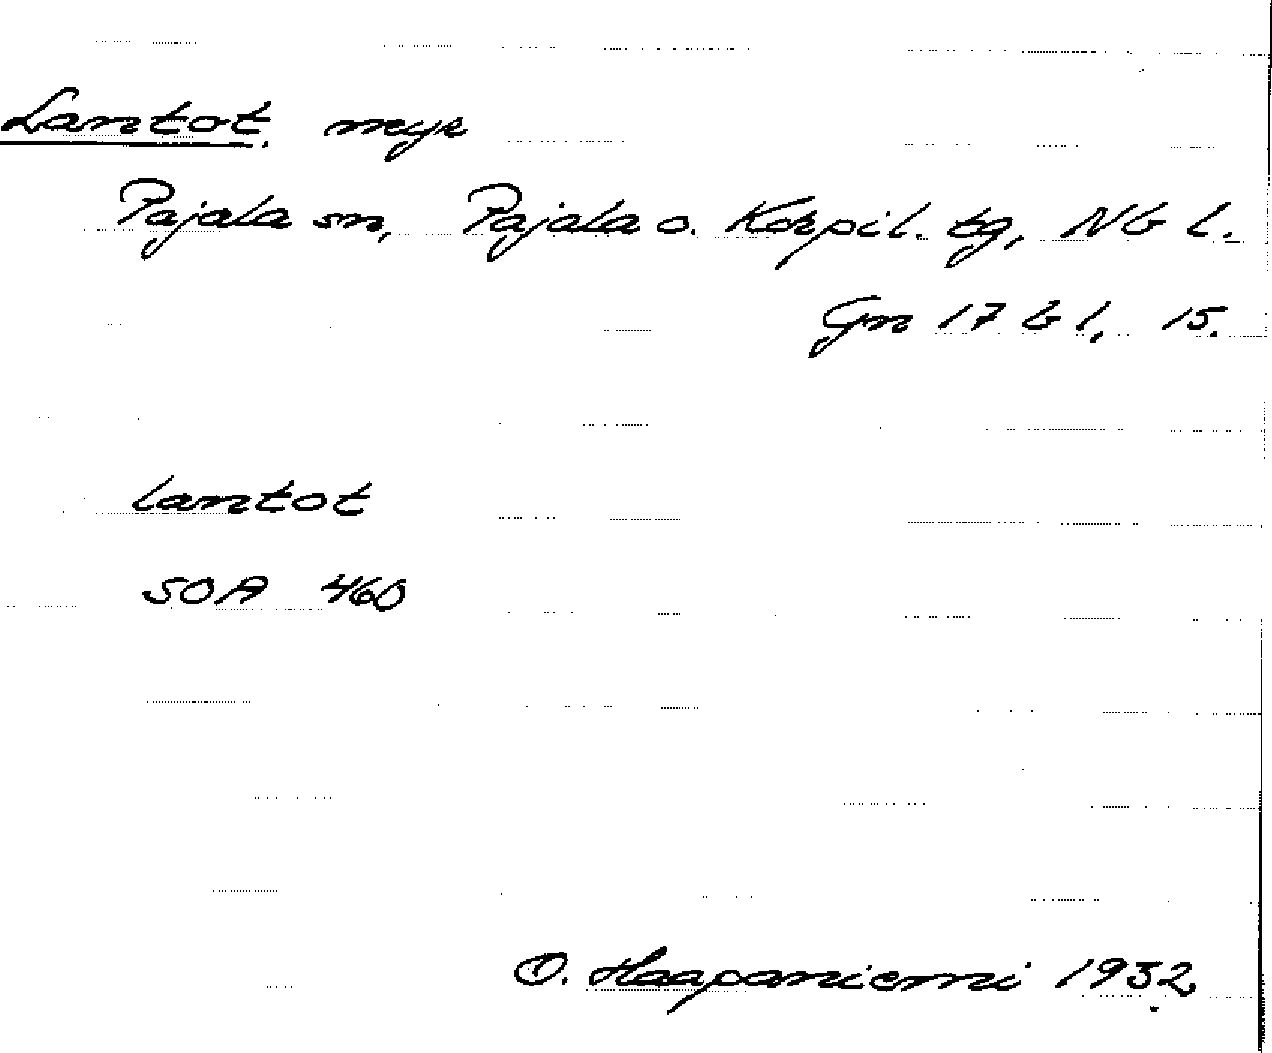 Lantot, myr
Pajala sn, Pajala o. Korpil. tg, NB l.
Gn 17 b l, 15.
lantot
SOA 460
O. Haapaniemi 1932